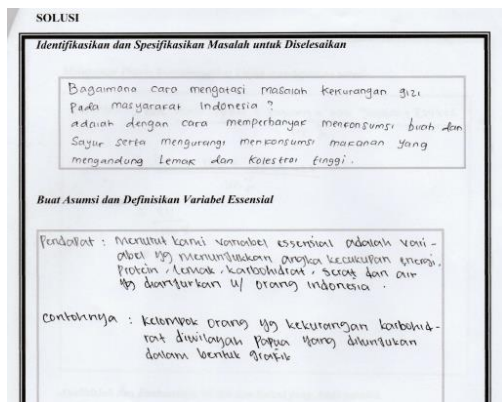 SOLUSI
Identifikasikan dan Spesifikasikan Masalah untuk Diselesaikan
Bagaimana cara mengatasi masalah kekurangan gizi
Pada masyarakat Indonesia ?
adalah dengan cara memperbanyak menkonsumsi buah dan
Sayur serta mengurangi menkonsumsi makanan yang
mengandung Lemak dan Kolestrol tinggi.
Buat Asumsi dan Definisikan Variabel Essensial
Pendapat : menurut kami variabel essensial adalah vari-
abel yg menunjukkan angka kecukupan energi,
Protein, lemak, karbohidrat, serat dan air
yg dianjurkan u/ orang indonesia .
contohnya : kelompok orang yg kekurangan karbohid-
rat diwilayah Papua yang ditunjukan
dalam bentuk grafik